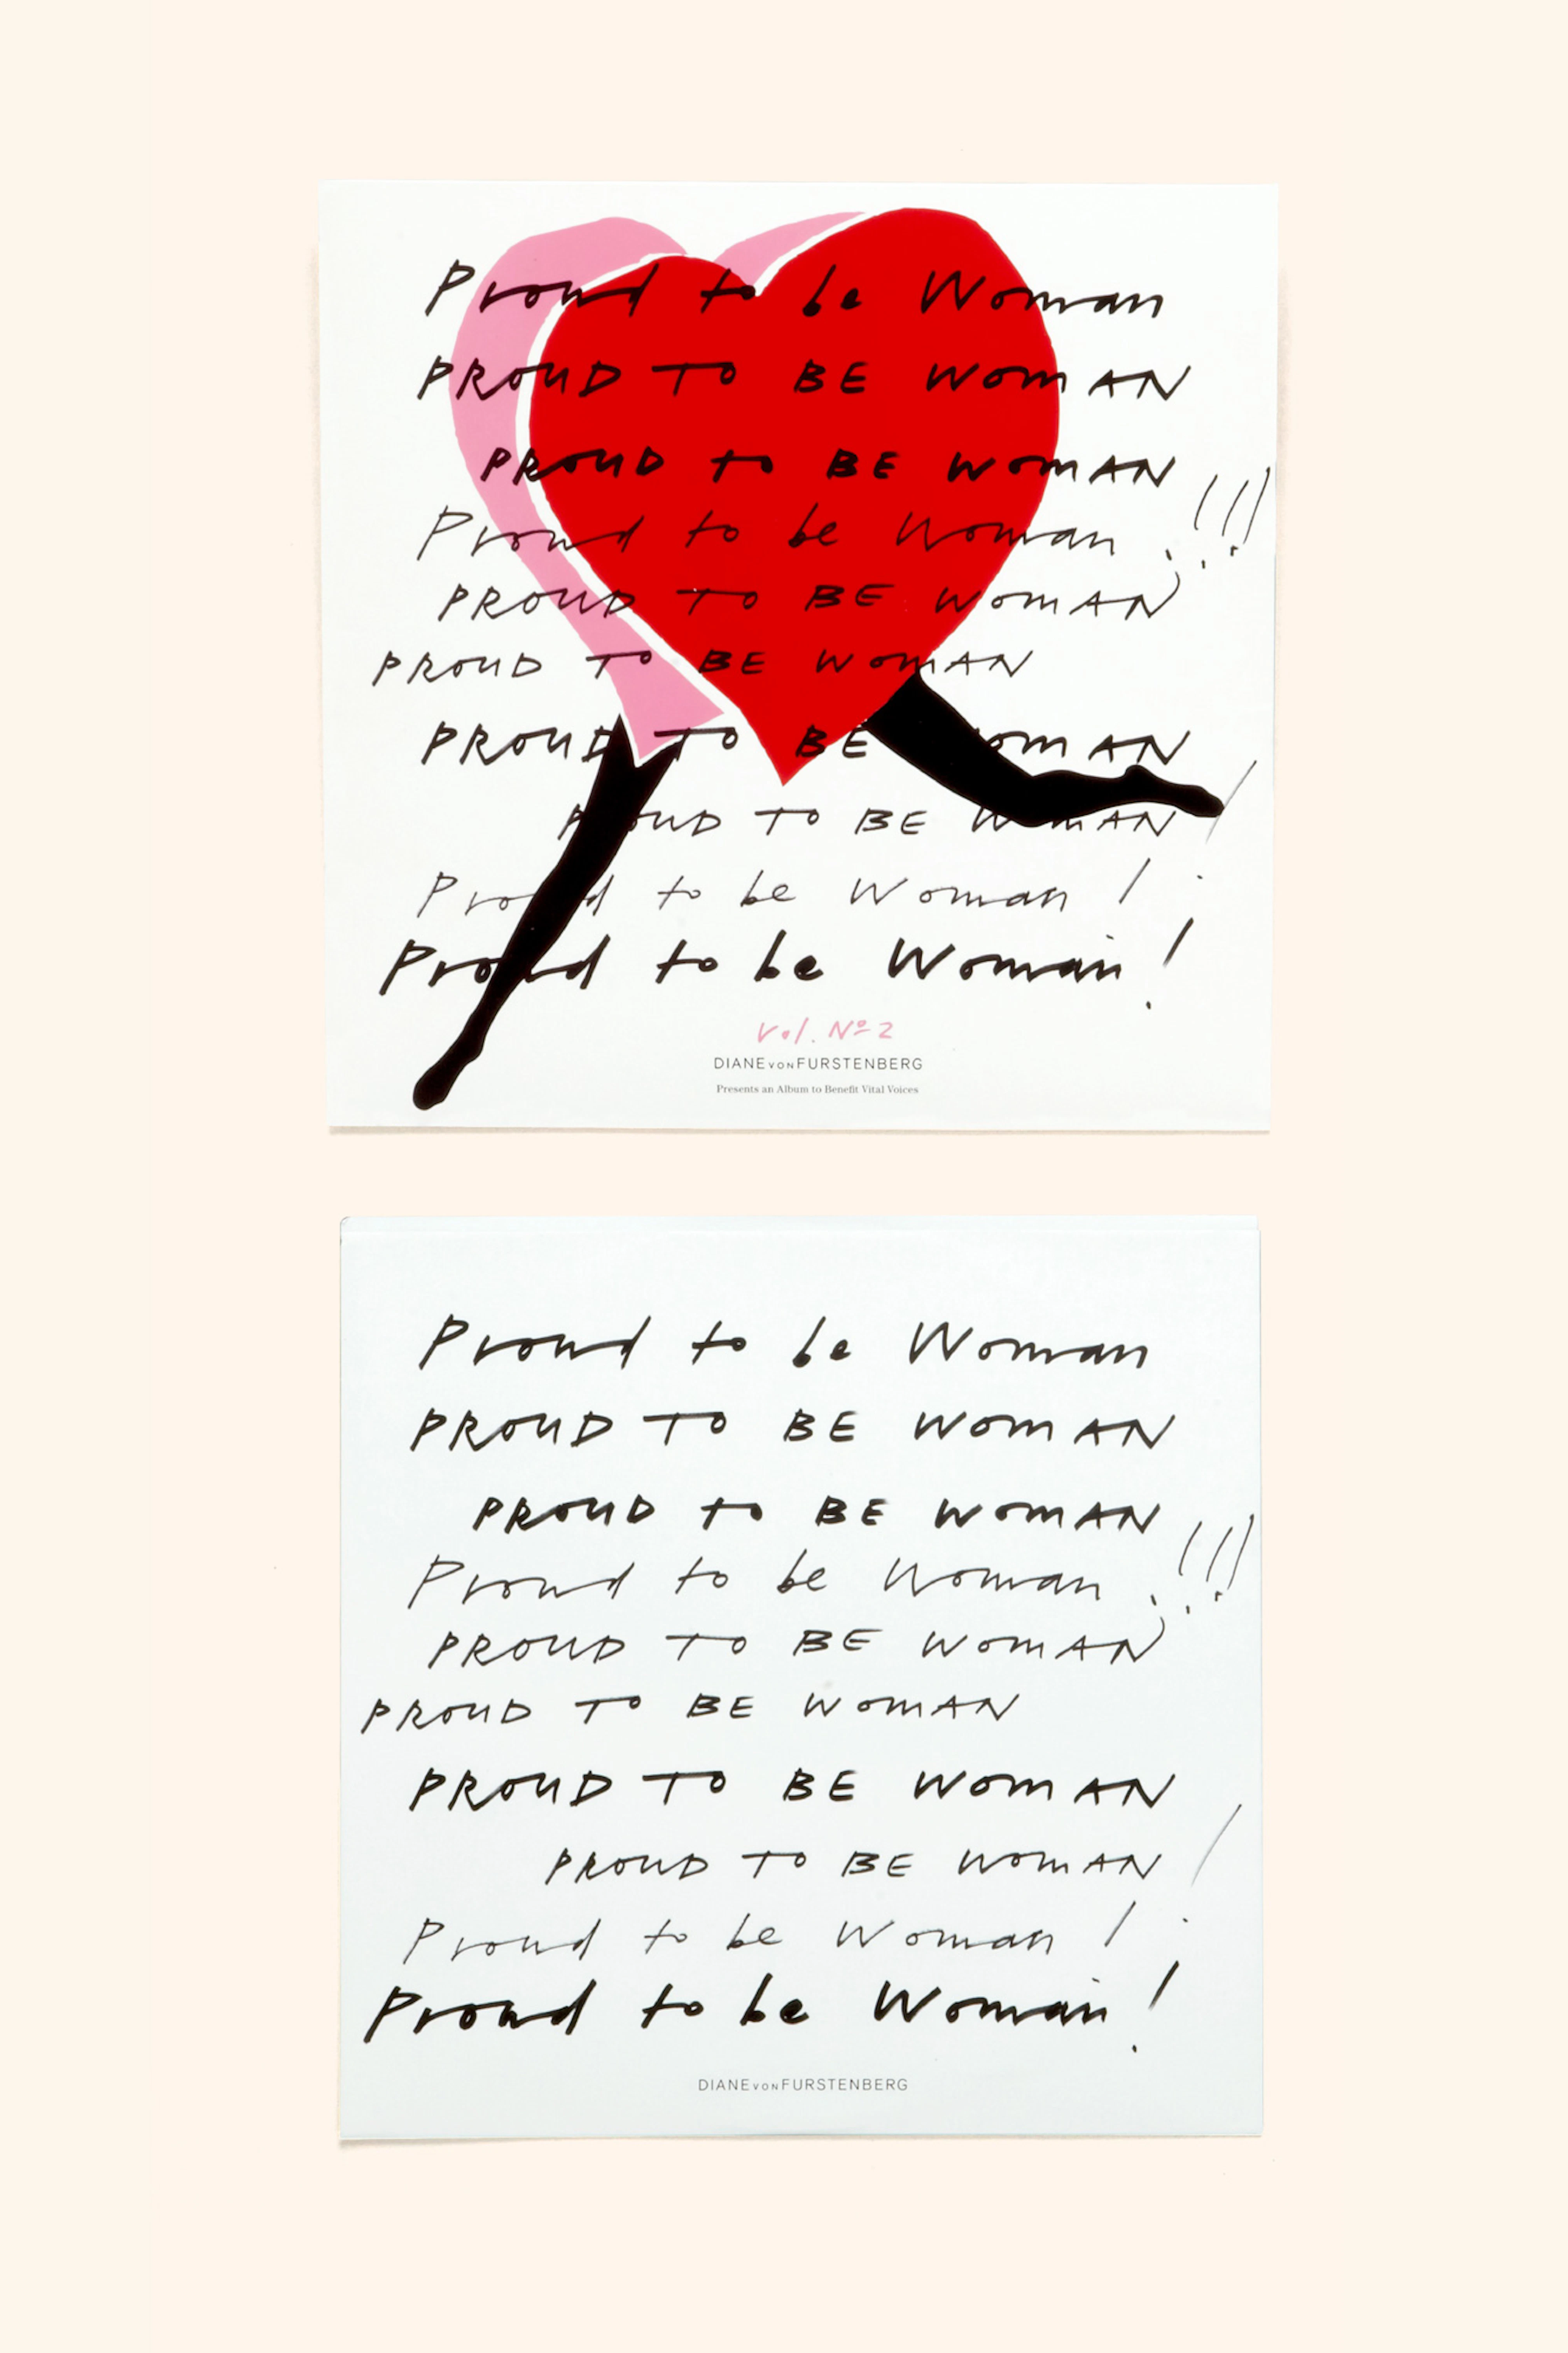 Proud to be Woman
PROUD TO BE WOMAN
PROUD to BE WOMAN
Proud to be Woman !!!
PROUD TO BE WOMAN
PROUD TO BE WOMAN
PROUD TO BE WOMAN
PROUD TO BE WOMAN !
Proud to be Woman !
Proud to be Woman!
Vol. Nº 2
DIANE VON FURSTENBERG
Presents an Album to Benefit Vital Voices
Proud to be Woman
PROUD TO BE WOMAN
PROUD to BE WOMAN
Proud to be Woman !!!
PROUD TO BE WOMAN
PROUD TO BE WOMAN
PROUD TO BE WOMAN
PROUD TO BE WOMAN !
Proud to be Woman !
Proud to be Woman!
DIANE VON FURSTENBERG